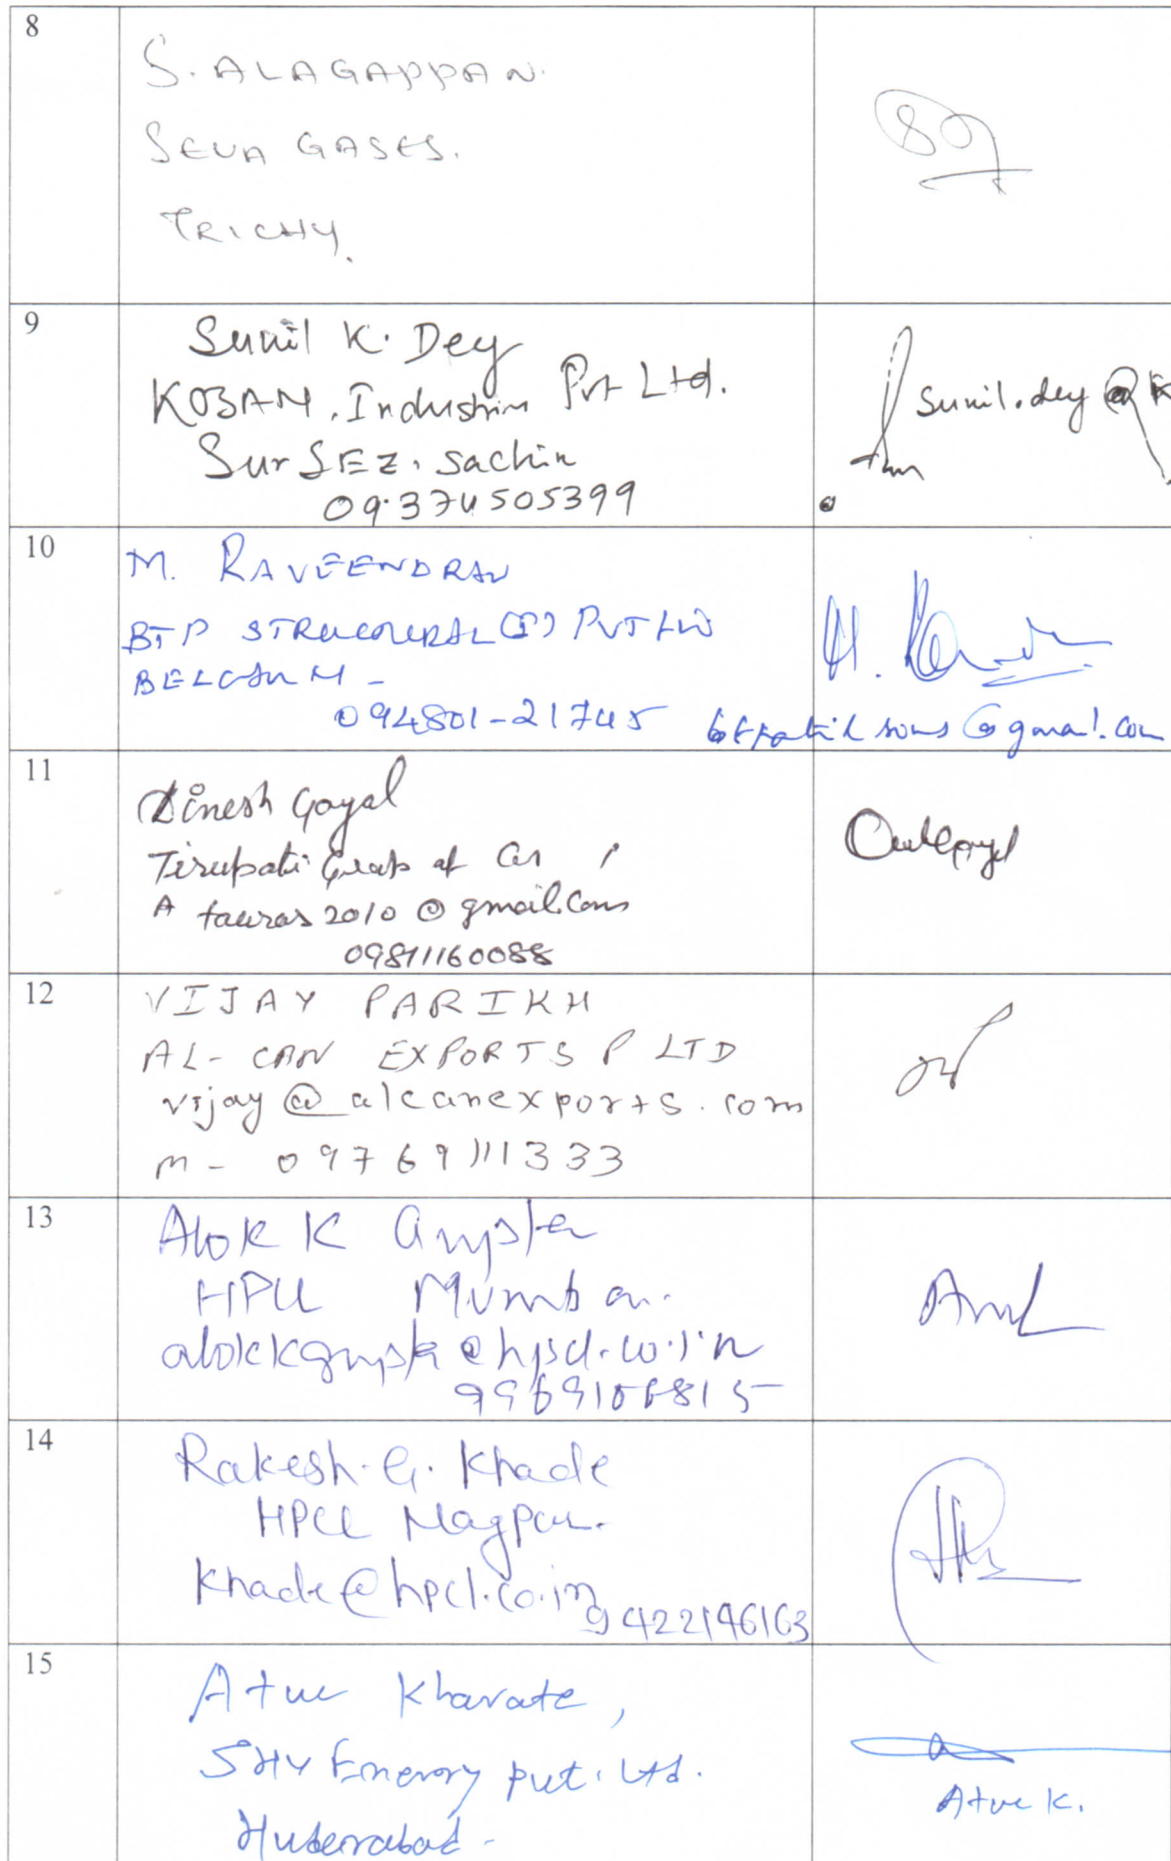 8
S. ALAGAPPAN.
SEVA GASES.
TRICHY.
9
Sunil K. Dey
KOSAN. Industries Pvt Ltd.
Sur SEZ. Sachin
09.374505399
sunil.dey @ K
10
M. RAVEENDRAN
BTP STRUCTURAL (I) PVT LTD
BELGAUM -
094801-21745 btpatil sons @ gmail.com
11
Dinesh Goyal
Tirupati Group of
tauras 2010 @ gmail.com
09811160088
12
VIJAY PARIKH
AL-CAN EXPORTS P LTD
vijay @ alcanexports.com
m - 09769111333
13
Alok K Gupta
HPCL Mumbai.
alokkgupta@hpcl.co.in
14
Rakesh. G. Khade
HPCL Nagpur.
khade@hpcl.co.in 9422146163
15
Atul Kharate,
SHV Energy pvt. Ltd.
Hyderabad -
Atul K.